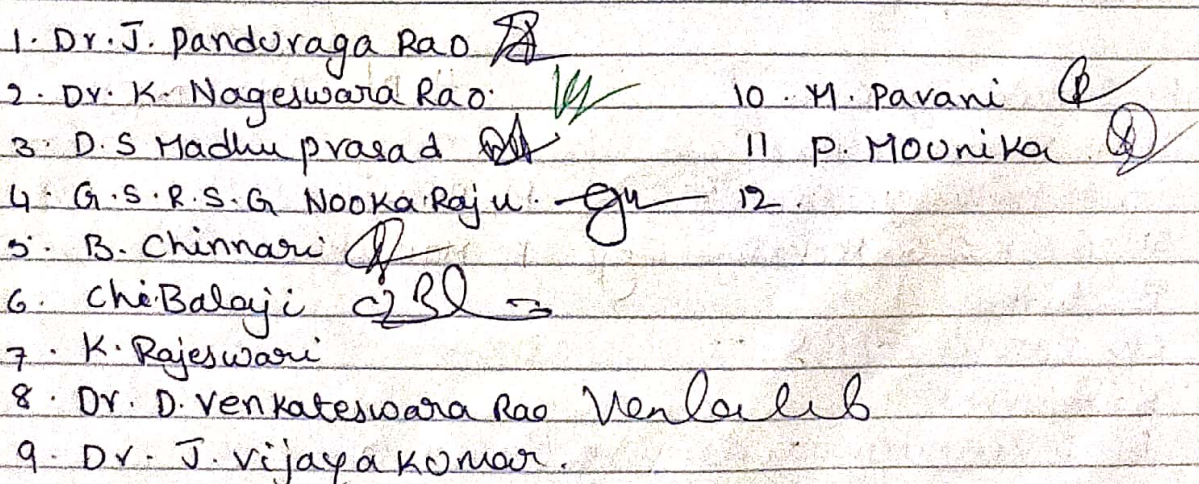 1. Dr. J. Panduraga Rao
2. Dr. K. Nageswara Rao.
3. D.S Madhu prasad
4. G.S.R.S.G Nooka Raju.
5. B. Chinnari
6. Ch.Balaji
7. K. Rajeswari
8. Dr. D. Venkateswara Rao
9. Dr. J. Vijaya Kumar.
10. M. Pavani
11 P. Mounika
12.